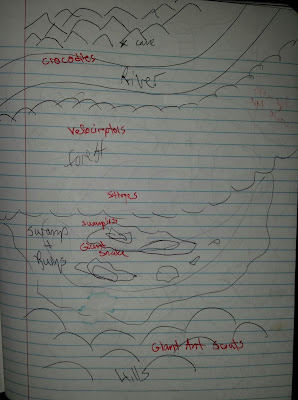 x cave
Crocodiles
River
Velociraptors
forest
Stirges
Swamp
+
Ruins
Giant
Snake
Giant Ant Scouts
Hills